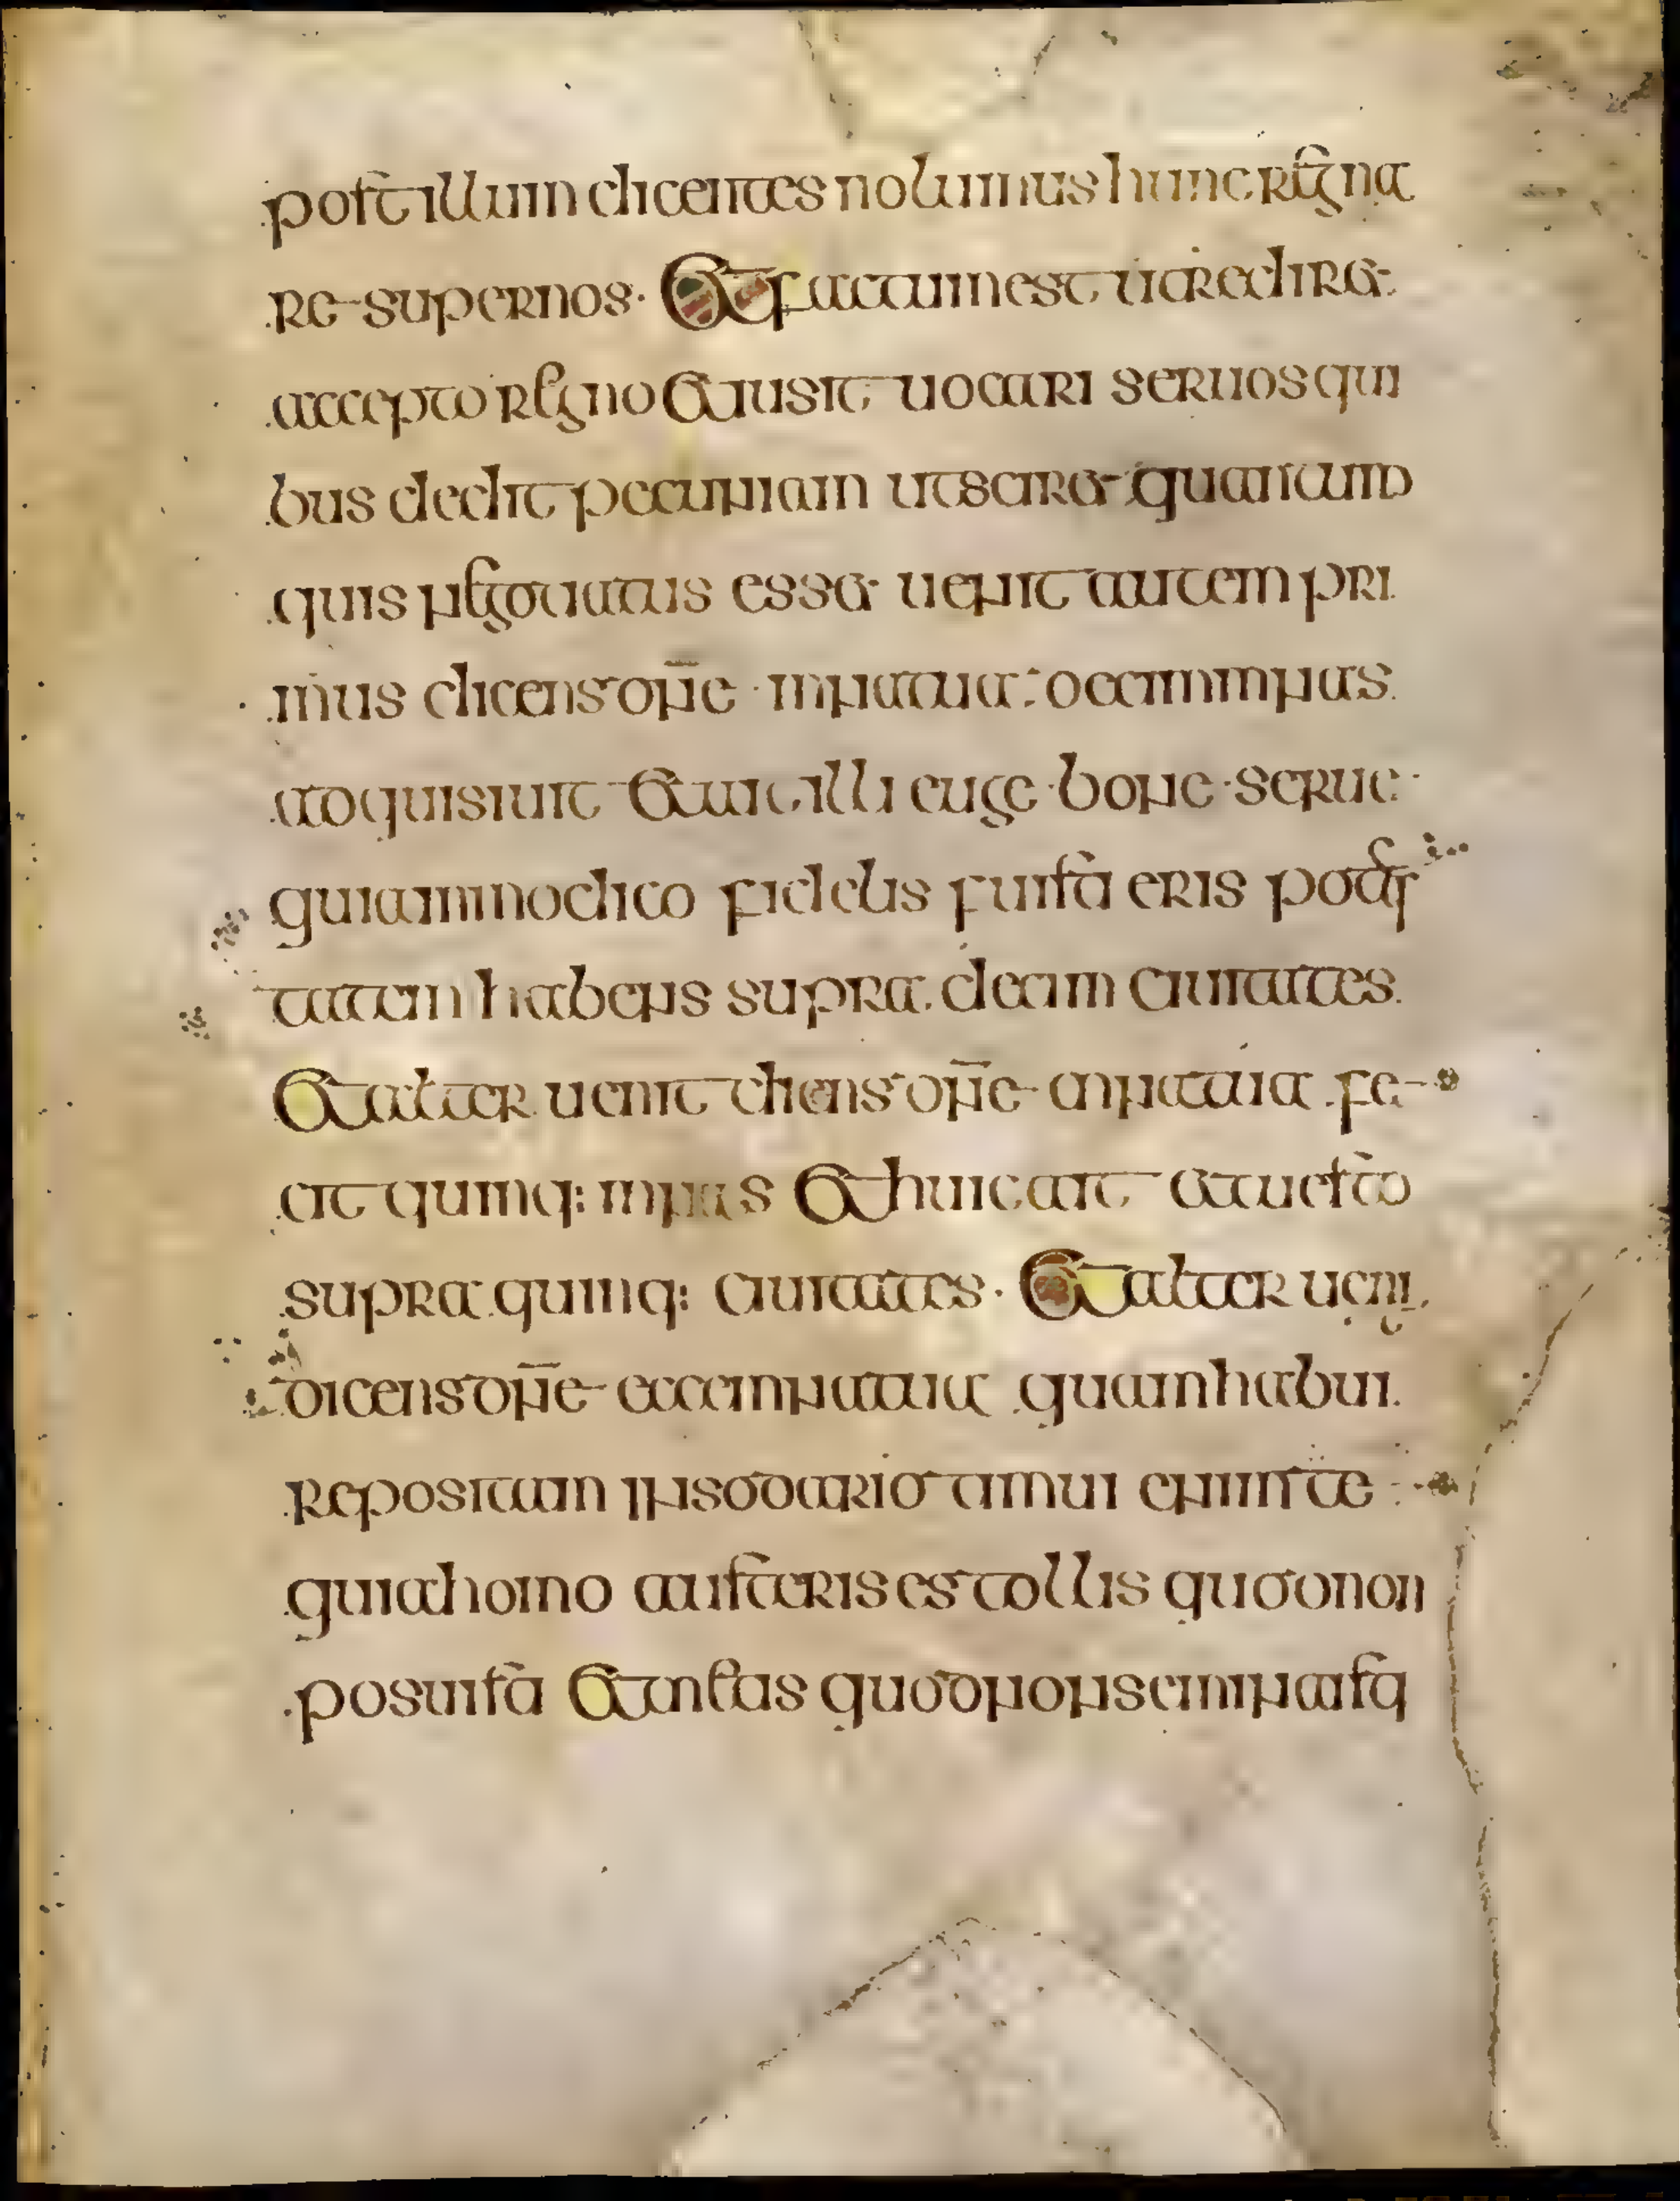 post illum dicentes nolumus hunc regna
re super nos. Et factum est ut rediret
accepto regno et iusit uocari seruos qui
bus dedit pecuniam ut sciret quantum
quis negotiatus esset uenit autem pri
mus dicens dne mna tua decim mnas
adquisiuit et ait illi euge bone serue
quia in modico fidelis fuisti eris potes
tatem habens supra decim ciuitates
Et alter uenit diens dne mna tua fe
cit quinq: mnas et huic ait et tu esto
supra quinq: ciuitates. Et alter ueni
dicens dne ecce mna tua quam habui
repositam in sodario timui enim te
quia homo austeris es tollis quod non
posuisti et metis quod non seminasti